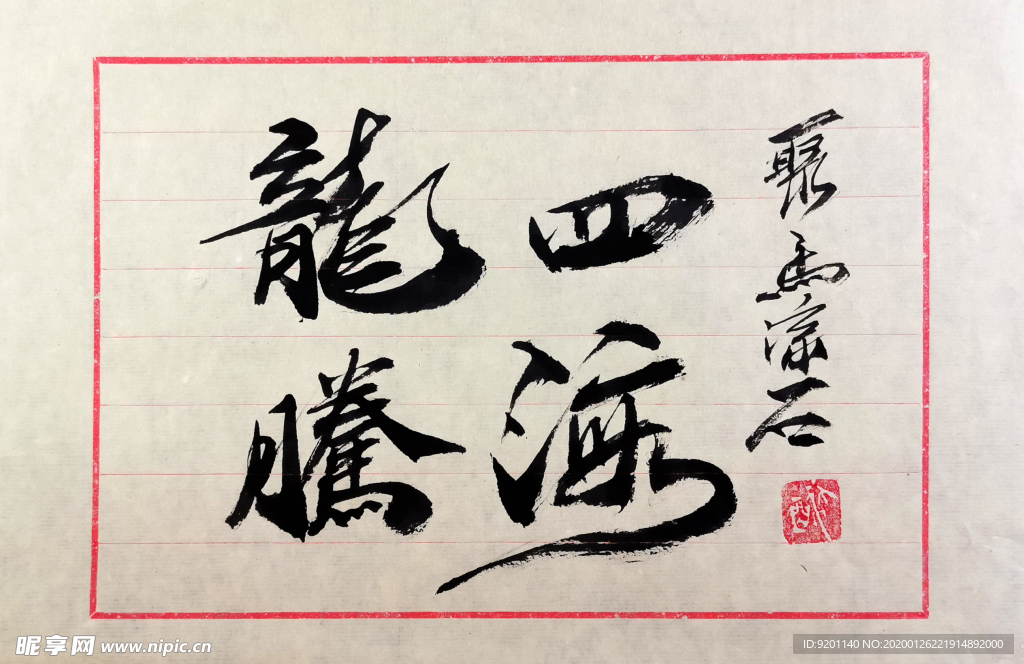 馬 石
四海
龍騰
昵享网 www.nipic.cn
ID:9201140 NO:20200126221914892000